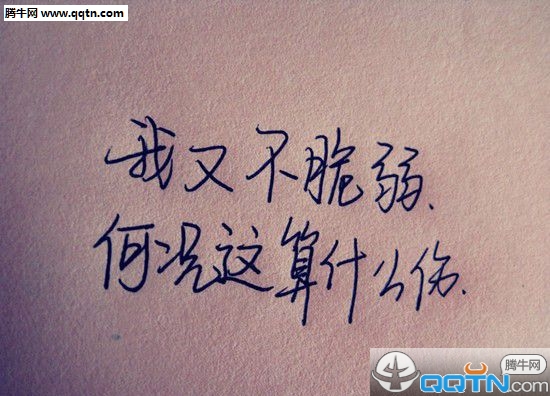 腾牛网 www.qqtn.com
我又不脆弱、
何况这算什么伤、
腾牛网
QQTN.com